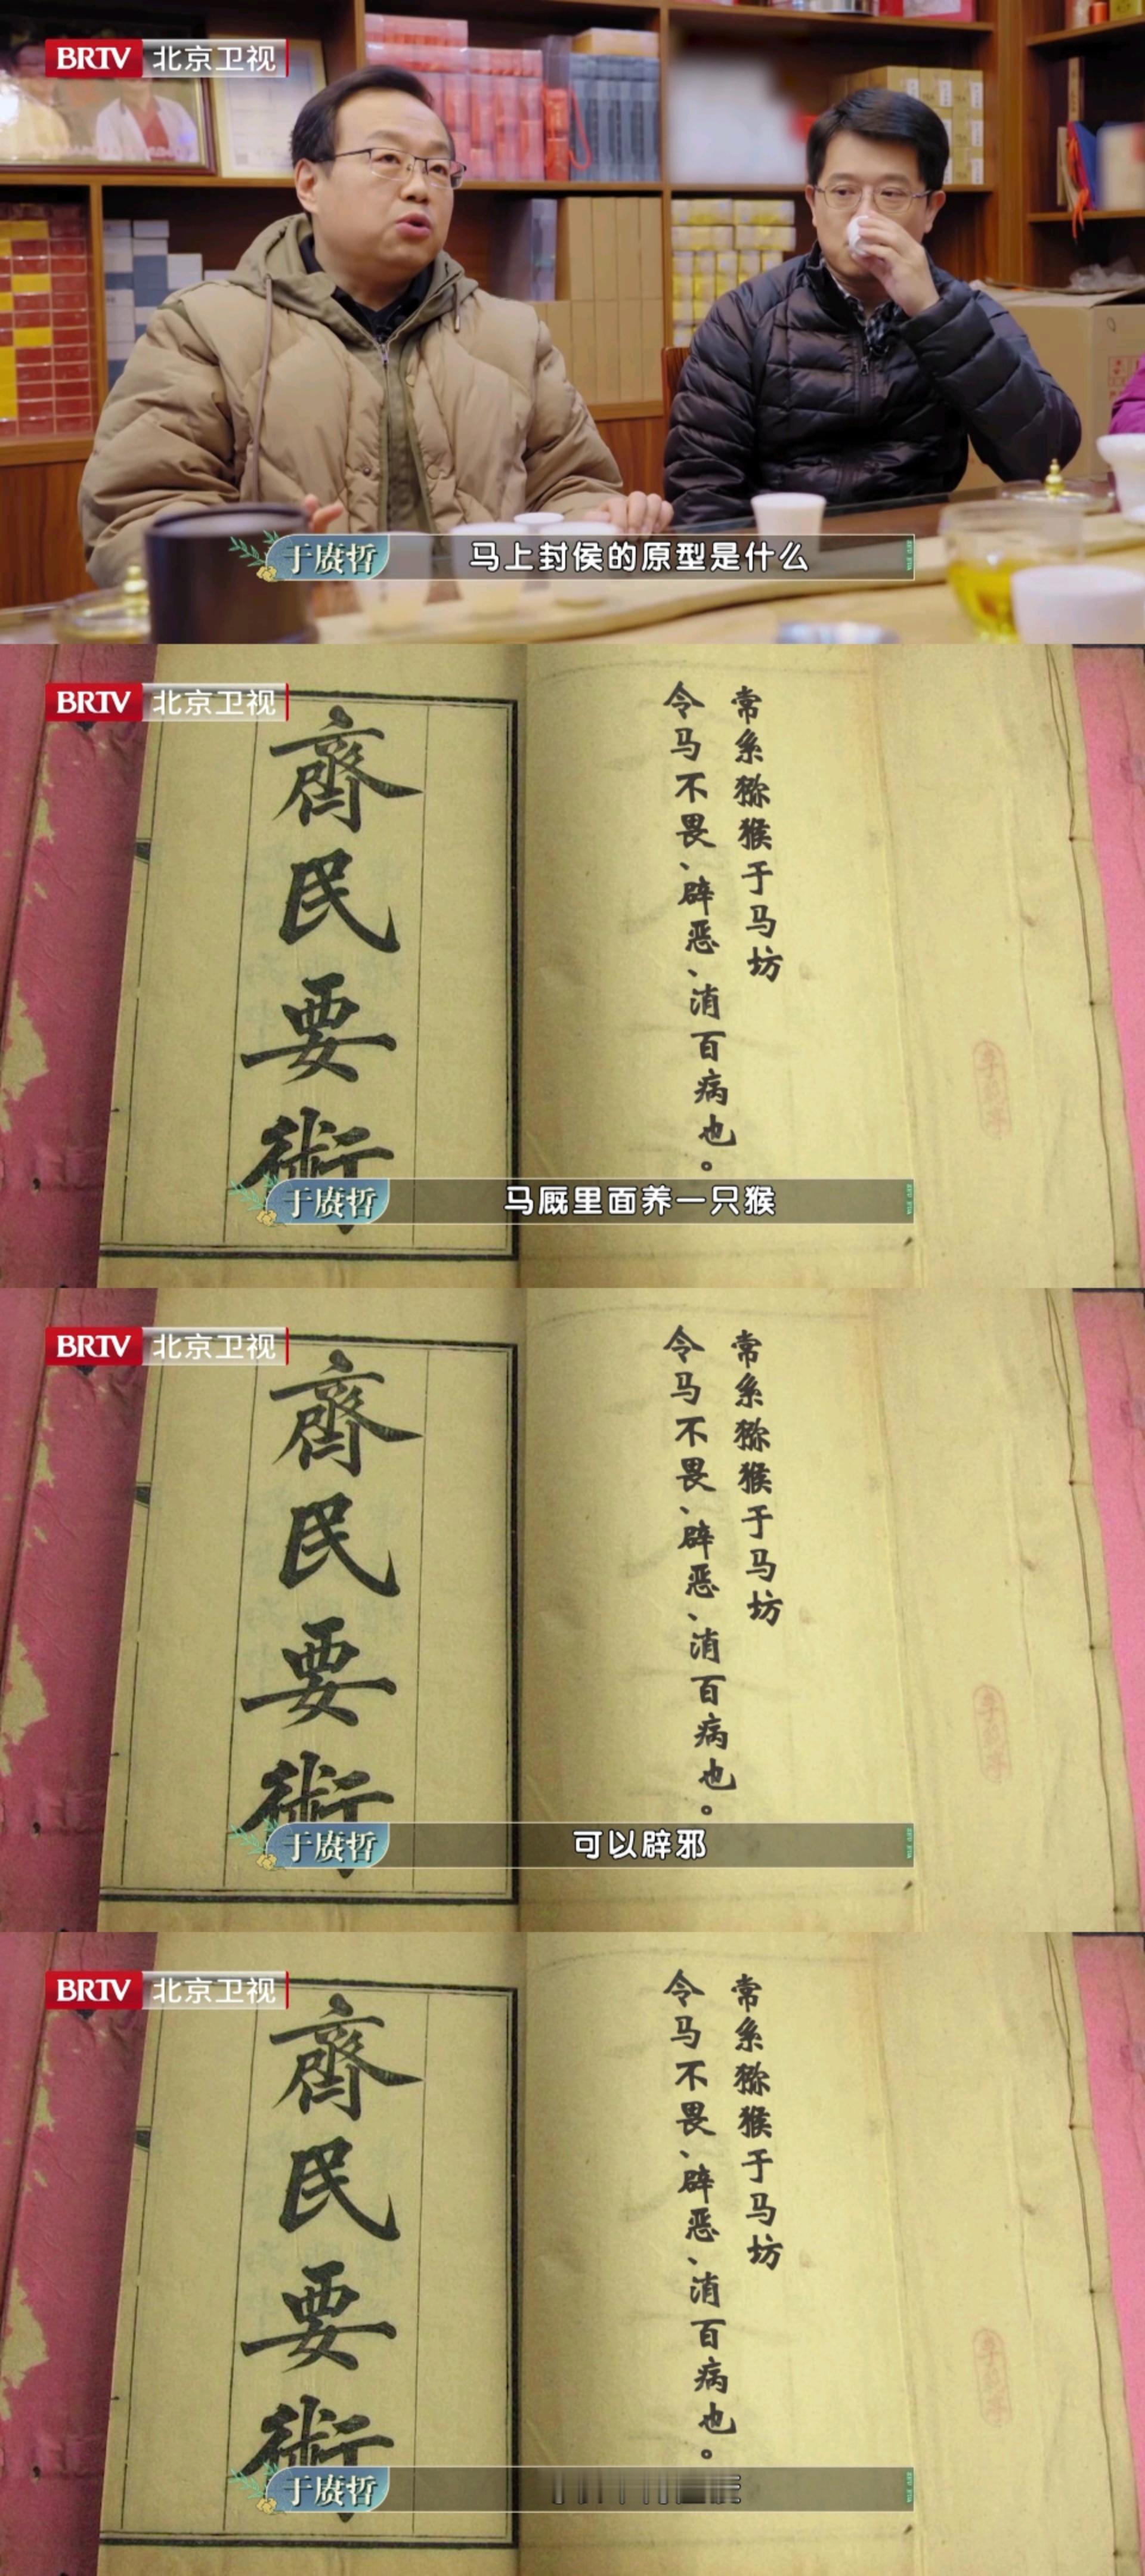 BRTV 北京卫视
于赓哲 马上封侯的原型是什么
BRTV 北京卫视
齊民要術
常系猕猴于马坊
令马不畏、辟恶、消百病也。
于赓哲 马厩里面养一只猴
BRTV 北京卫视
齊民要術
常系猕猴于马坊
令马不畏、辟恶、消百病也。
于赓哲 可以辟邪
BRTV 北京卫视
齊民要術
常系猕猴于马坊
令马不畏、辟恶、消百病也。
于赓哲